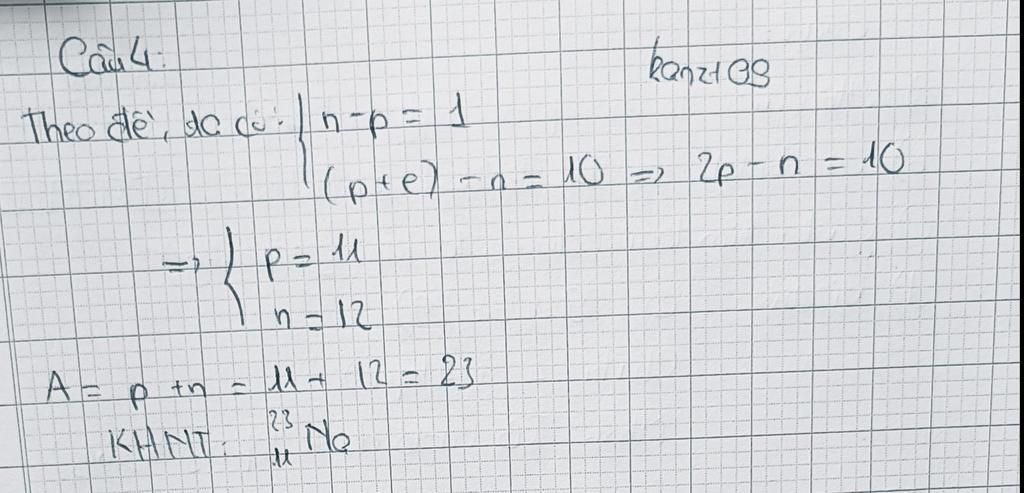 Câu 4:
kanz1 09
Theo đề, ta có: { n - p = 1
(p+e) - n = 10 => 2p - n = 10
=> { p = 11
n = 12
A = p + n = 11 + 12 = 23
KHNT: ²³₁₁Na